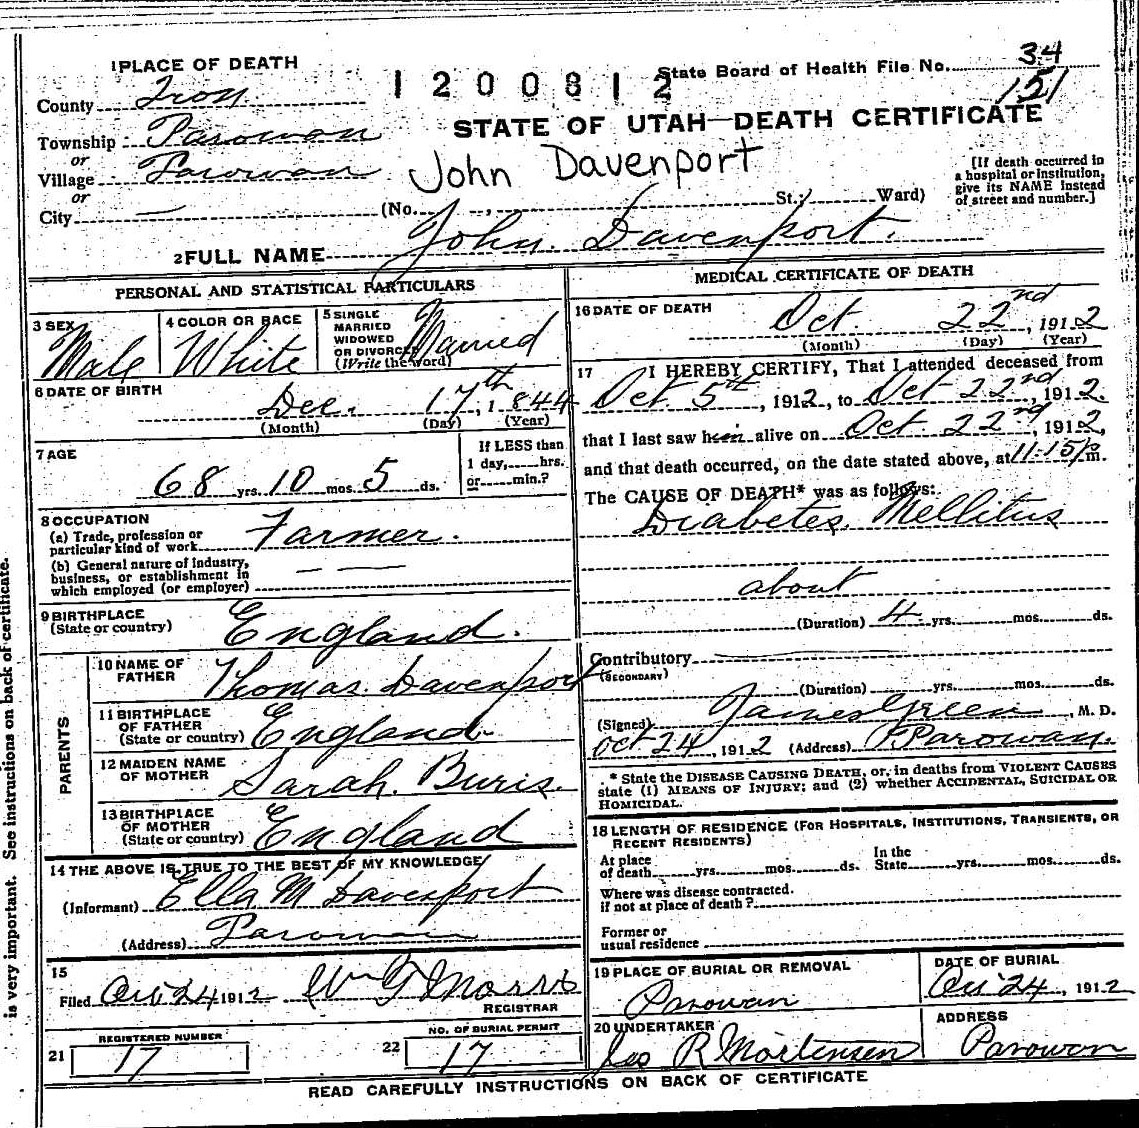 1 PLACE OF DEATH
1 2 0 0 8 1 2
State Board of Health File No. 34
151
County Iron
STATE OF UTAH—DEATH CERTIFICATE
Township Parowan
or
Village Parowan
John Davenport
or
City —
(No. , St.; Ward)
[If death occurred in
a hospital or institution,
give its NAME instead
of street and number.]
2 FULL NAME John. Davenport.
PERSONAL AND STATISTICAL PARTICULARS
3 SEX Male
4 COLOR OR RACE White
5 SINGLE
MARRIED
WIDOWED
OR DIVORCED
(Write the word) Married
6 DATE OF BIRTH
Dec. 17th, 1844
(Month) (Day) (Year)
7 AGE
68 yrs. 10 mos. 5 ds.
If LESS than
1 day, hrs.
or min.?
8 OCCUPATION
(a) Trade, profession or
particular kind of work Farmer.
(b) General nature of industry,
business, or establishment in
which employed (or employer) — —
9 BIRTHPLACE
(State or country) England.
PARENTS
10 NAME OF
FATHER Thomas. Davenport
11 BIRTHPLACE
OF FATHER
(State or country) England.
12 MAIDEN NAME
OF MOTHER Sarah. Buris.
13 BIRTHPLACE
OF MOTHER
(State or country) England
14 THE ABOVE IS TRUE TO THE BEST OF MY KNOWLEDGE
(Informant) Ella M Davenport
(Address) Parowan
15
Filed Oct 24 1912 Wm G Morris
REGISTRAR
REGISTERED NUMBER
21 17
NO. OF BURIAL PERMIT
22 17
MEDICAL CERTIFICATE OF DEATH
16 DATE OF DEATH
Oct. 22nd, 1912
(Month) (Day) (Year)
17 I HEREBY CERTIFY, That I attended deceased from
Oct. 5th, 1912, to Oct 22nd, 1912.
that I last saw him alive on Oct 22nd, 1912,
and that death occurred, on the date stated above, at 11.15 p m.
The CAUSE OF DEATH* was as follows:
Diabetes. Mellitus
about
(Duration) 4 yrs. mos. ds.
Contributory
(SECONDARY)
(Duration) yrs. mos. ds.
(Signed) James Green, M. D.
Oct 24, 1912 (Address) Parowan.
* State the DISEASE CAUSING DEATH, or, in deaths from VIOLENT CAUSES
state (1) MEANS OF INJURY; and (2) whether ACCIDENTAL, SUICIDAL OR
HOMICIDAL.
18 LENGTH OF RESIDENCE (FOR HOSPITALS, INSTITUTIONS, TRANSIENTS, OR
RECENT RESIDENTS)
At place
of death yrs. mos. ds.
In the
State yrs. mos. ds.
Where was disease contracted.
if not at place of death?
Former or
usual residence
19 PLACE OF BURIAL OR REMOVAL
Parowan
DATE OF BURIAL
Oct 24, 1912
20 UNDERTAKER
R Mortensen
ADDRESS
Parowan
READ CAREFULLY INSTRUCTIONS ON BACK OF CERTIFICATE
is very important. See instructions on back of certificate.